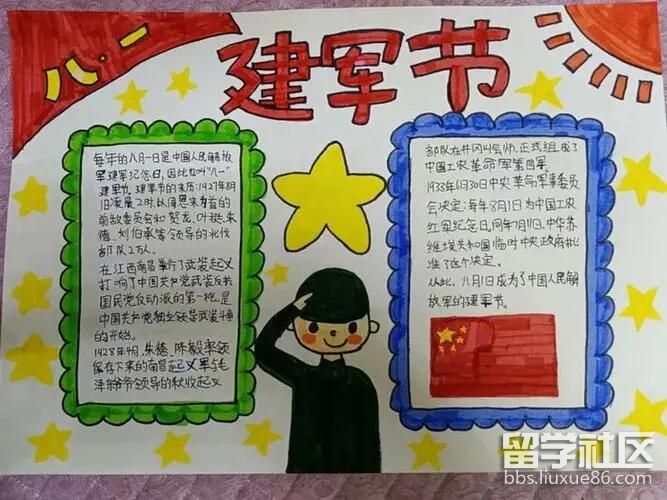 八·一
建军节
每年的八月一日是中国人民解放
军建军纪念日，因此也叫"八一"
建军节。建军节的来历：1927年8月
1日凌晨2时，以周恩来为首的
前敌委员会和贺龙、叶挺、朱
德、刘伯承等领导的北伐
部队2万人。
在江西南昌举行了武装起义
打响了中国共产党武装反抗
国民党反动派的第一枪，是
中国共产党独立领导武装斗争
的开始。
1928年4月，朱德、陈毅率领
保存下来的南昌起义军与毛
泽东爷爷领导的秋收起义
部队在井冈山会师，正式组成了
中国工农革命军第四军。
1933年6月30日中央革命军事委员
会决定：每年8月1日为中国工农
红军纪念日，同年7月1日，中华苏
维埃共和国临时中央政府批
准了这个决定。
从此，八月1日成为了中国人民解
放军的建军节。
留学社区
bbs.liuxue86.com